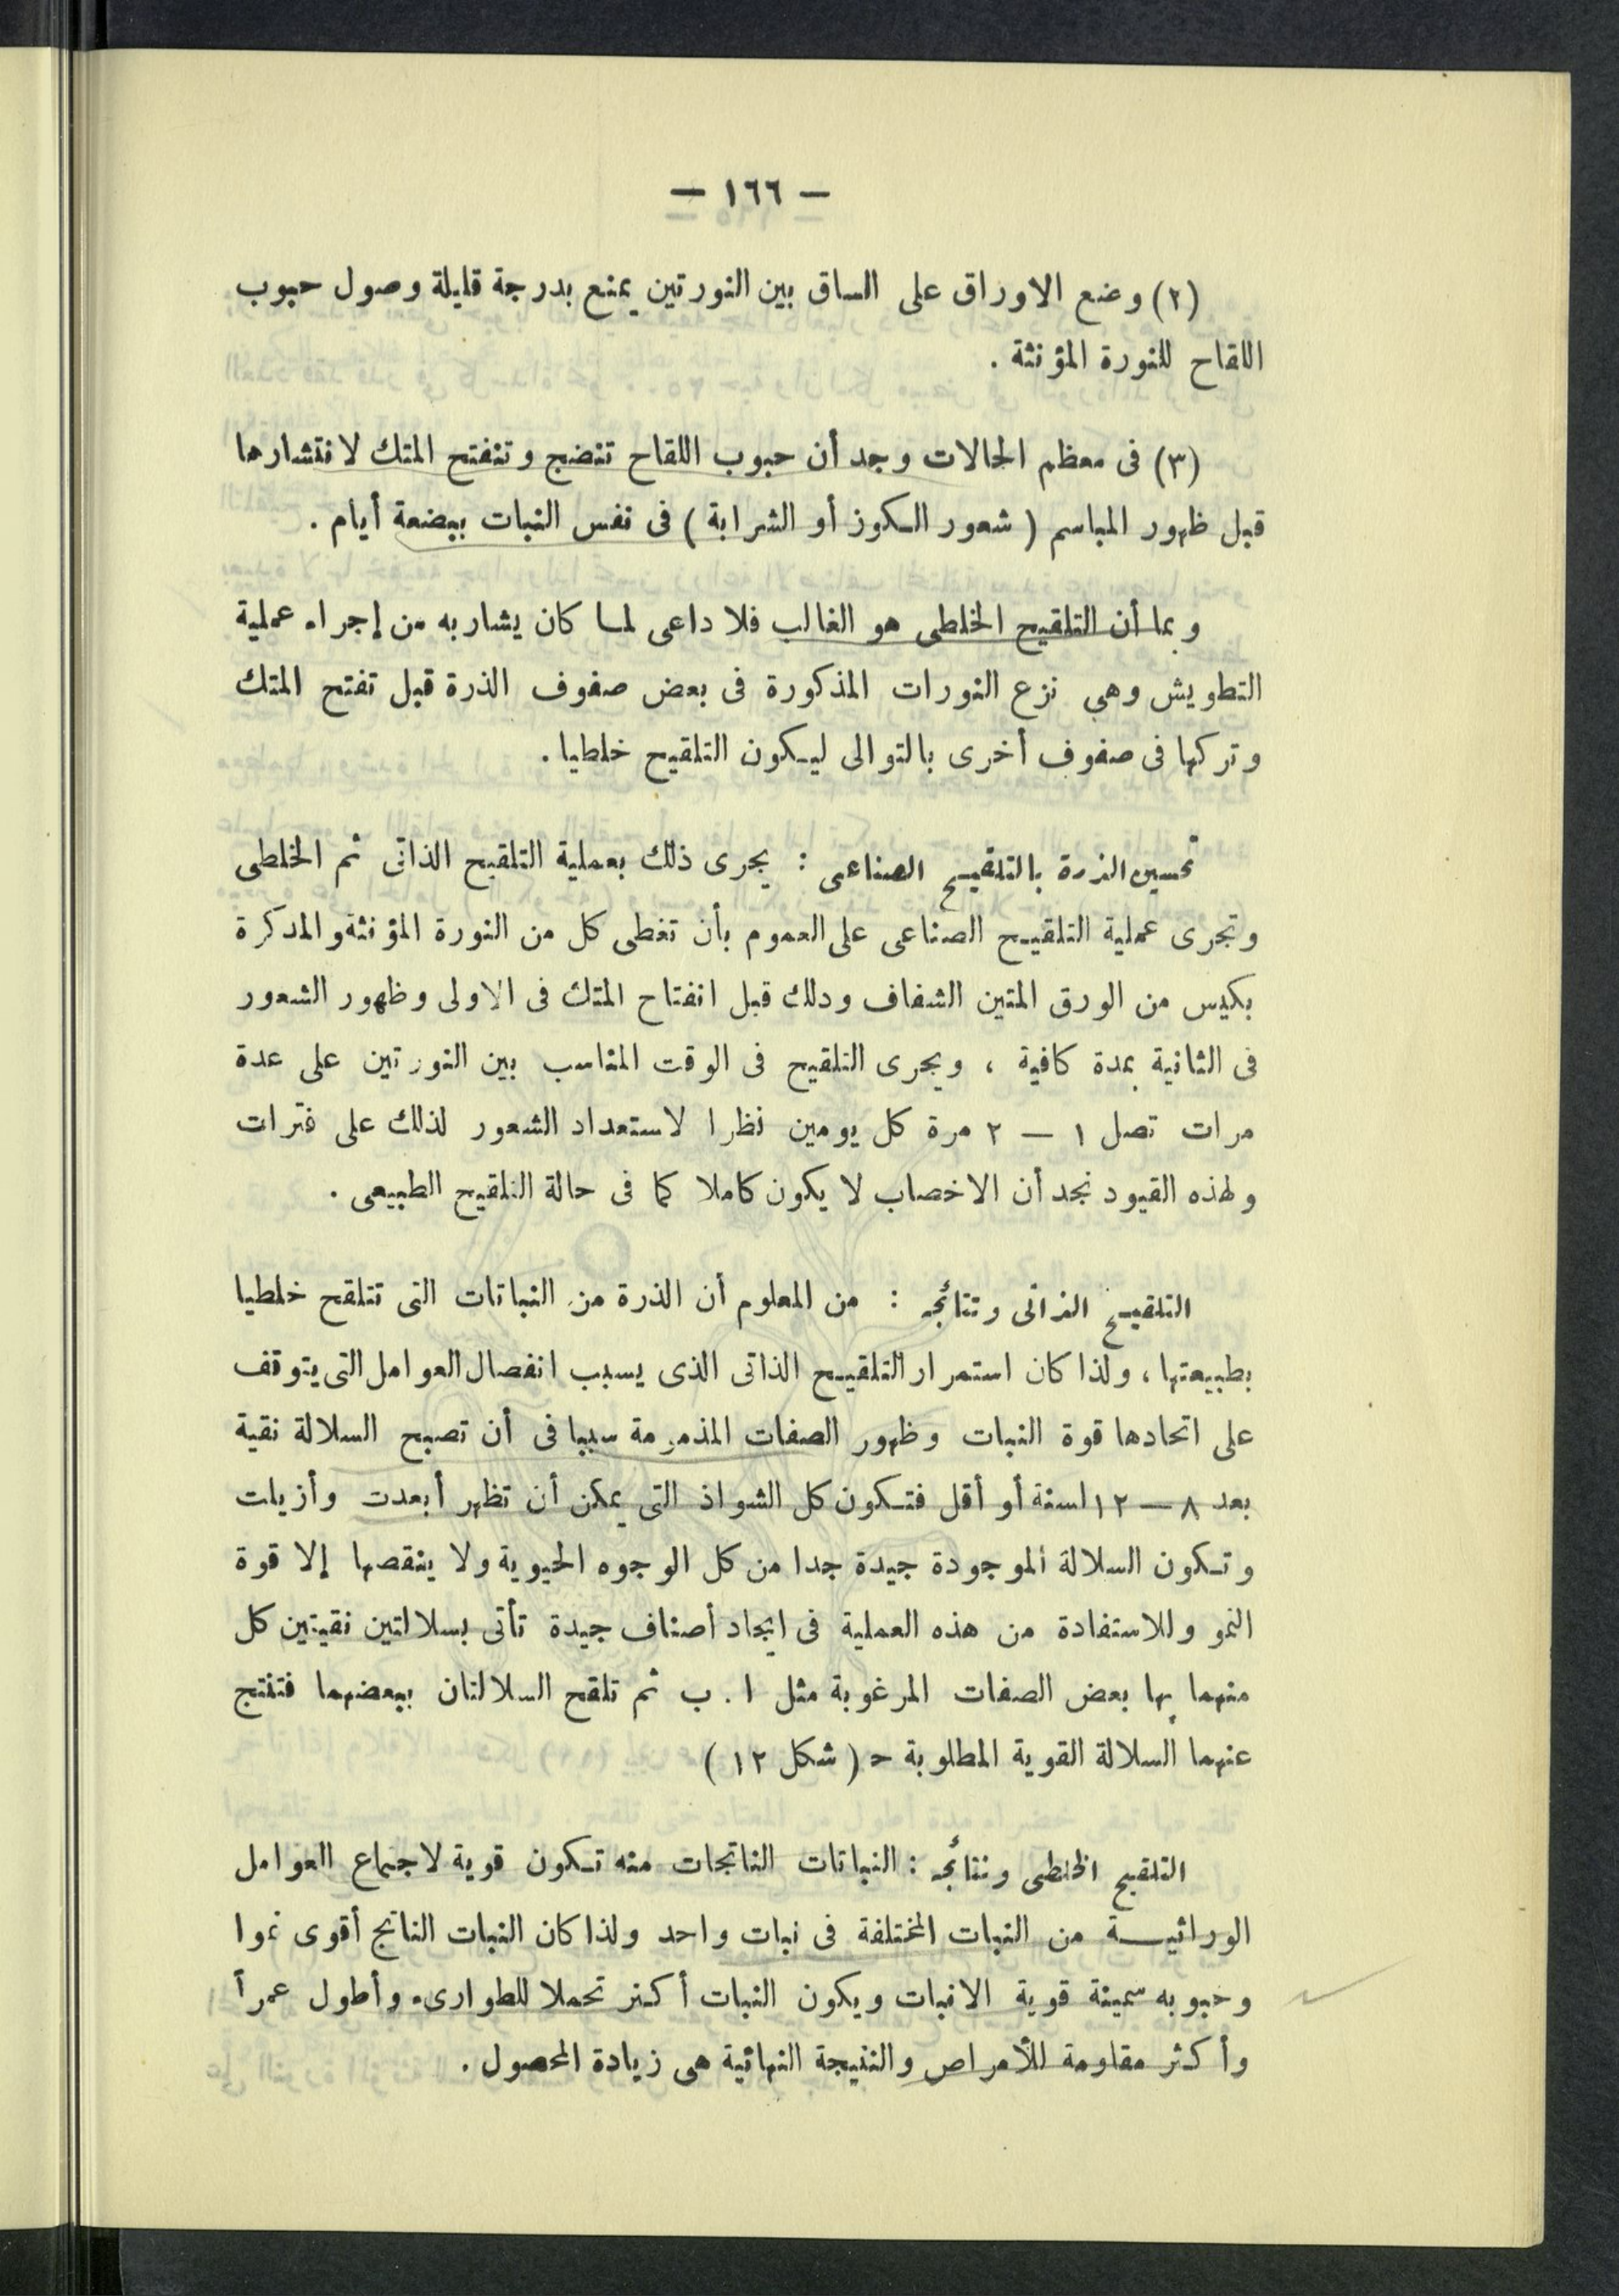 — ١٦٦ —
(٢) وضع الاوراق على الساق بين النورتين يمنع بدرجة قليلة وصول حبوب
اللقاح للنورة المؤنثة .
(٣) فى معظم الحالات وجد أن حبوب اللقاح تنضج وتنفتح المتك لانتشارها
قبل ظهور المياسم ( شعور الكوز أو الشرابة ) فى نفس النبات ببضعة أيام .
وبما أن التلقيح الخلطى هو الغالب فلا داعى لما كان يشار به من إجراء عملية
التطويش وهى نزع النورات المذكورة فى بعض صفوف الذرة قبل تفتح المتك
وتركها فى صفوف أخرى بالتوالى ليكون التلقيح خلطيا .
تحسين الذرة بالتلقيح الصناعى : يجرى ذلك بعملية التلقيح الذاتى ثم الخلطى
وتجرى عملية التلقيح الصناعى على العموم بأن تغطى كل من النورة المؤنثة والمدكرة
بكيس من الورق المتين الشفاف ودلك قبل انفتاح المتك فى الاولى وظهور الشعور
فى الثانية بمدة كافية ، ويجرى التلقيح فى الوقت المناسب بين النورتين على عدة
مرات تصل ١ — ٢ مرة كل يومين نظرا لاستعداد الشعور لذلك على فترات
ولهذه القيود نجد أن الاخصاب لا يكون كاملا كما فى حالة التلقيح الطبيعى .
التلقيح الذاتى ونتائجه : من المعلوم أن الذرة من النباتات التى تتلقح خلطيا
بطبيعتها ، ولذا كان استمرار التلقيح الذاتى الذى يسبب انفصال العوامل التى يتوقف
على اتحادها قوة النبات وظهور الصفات المذمومة سببا فى أن تصبح السلالة نقية
بعد ٨ — ١٢ لسنة أو أقل فتكون كل الشواذ التى يمكن أن تظهر أبعدت وأزيلت
وتكون السلالة الموجودة جيدة جدا من كل الوجوه الحيوية ولا ينقصها إلا قوة
النمو وللاستفادة من هذه العملية فى ايجاد أصناف جيدة تأتى بسلالتين نقيتين كل
منهما بها بعض الصفات المرغوبة مثل ا . ب ثم تلقح السلالتان ببعضهما فتنتج
عنهما السلالة القوية المطلوبة ح ( شكل ١٢ )
التلقيح الخلطى ونتائجه : النباتات الناتجات منه تكون قوية لاجتماع العوامل
الوراثيـــة من النبات المختلفة فى نبات واحد ولذا كان النبات الناتج أقوى نموا
وحبوبه سمينة قوية الانبات ويكون النبات أكثر تحملا للطوارىء وأطول عمرأ
وأكثر مقاومة للأمراض والنتيجة النهائية هى زيادة المحصول .